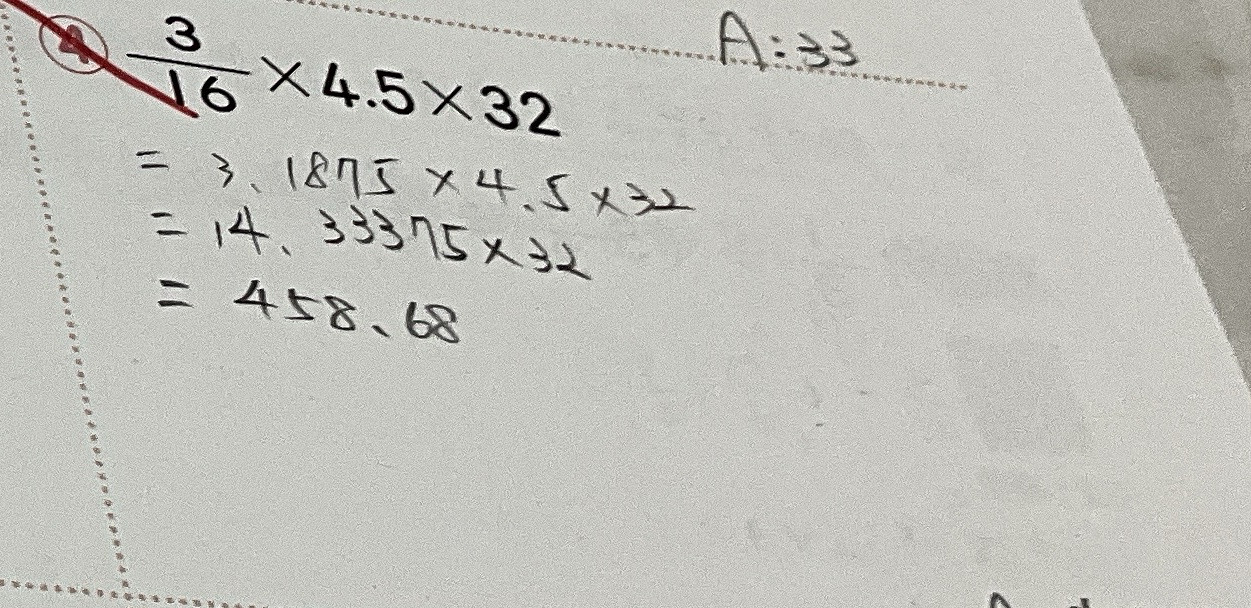 A:33
④ 3/16 × 4.5 × 32
= 3.1875 × 4.5 × 32
= 14.33375 × 32
= 458.68